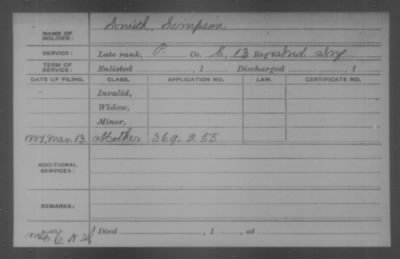 NAME OF SOLDIER: Smith, Simpson
SERVICE: Late rank, P. Co. C, 13 Reg't Ind Inf
TERM OF SERVICE: Enlisted , 1 Discharged , 1
DATE OF FILING. CLASS. APPLICATION NO. LAW. CERTIFICATE NO.
Invalid,
Widow,
Minor,
Mar. 13 Mother 369.255
ADDITIONAL SERVICES:
REMARKS:
Died , 1 , at